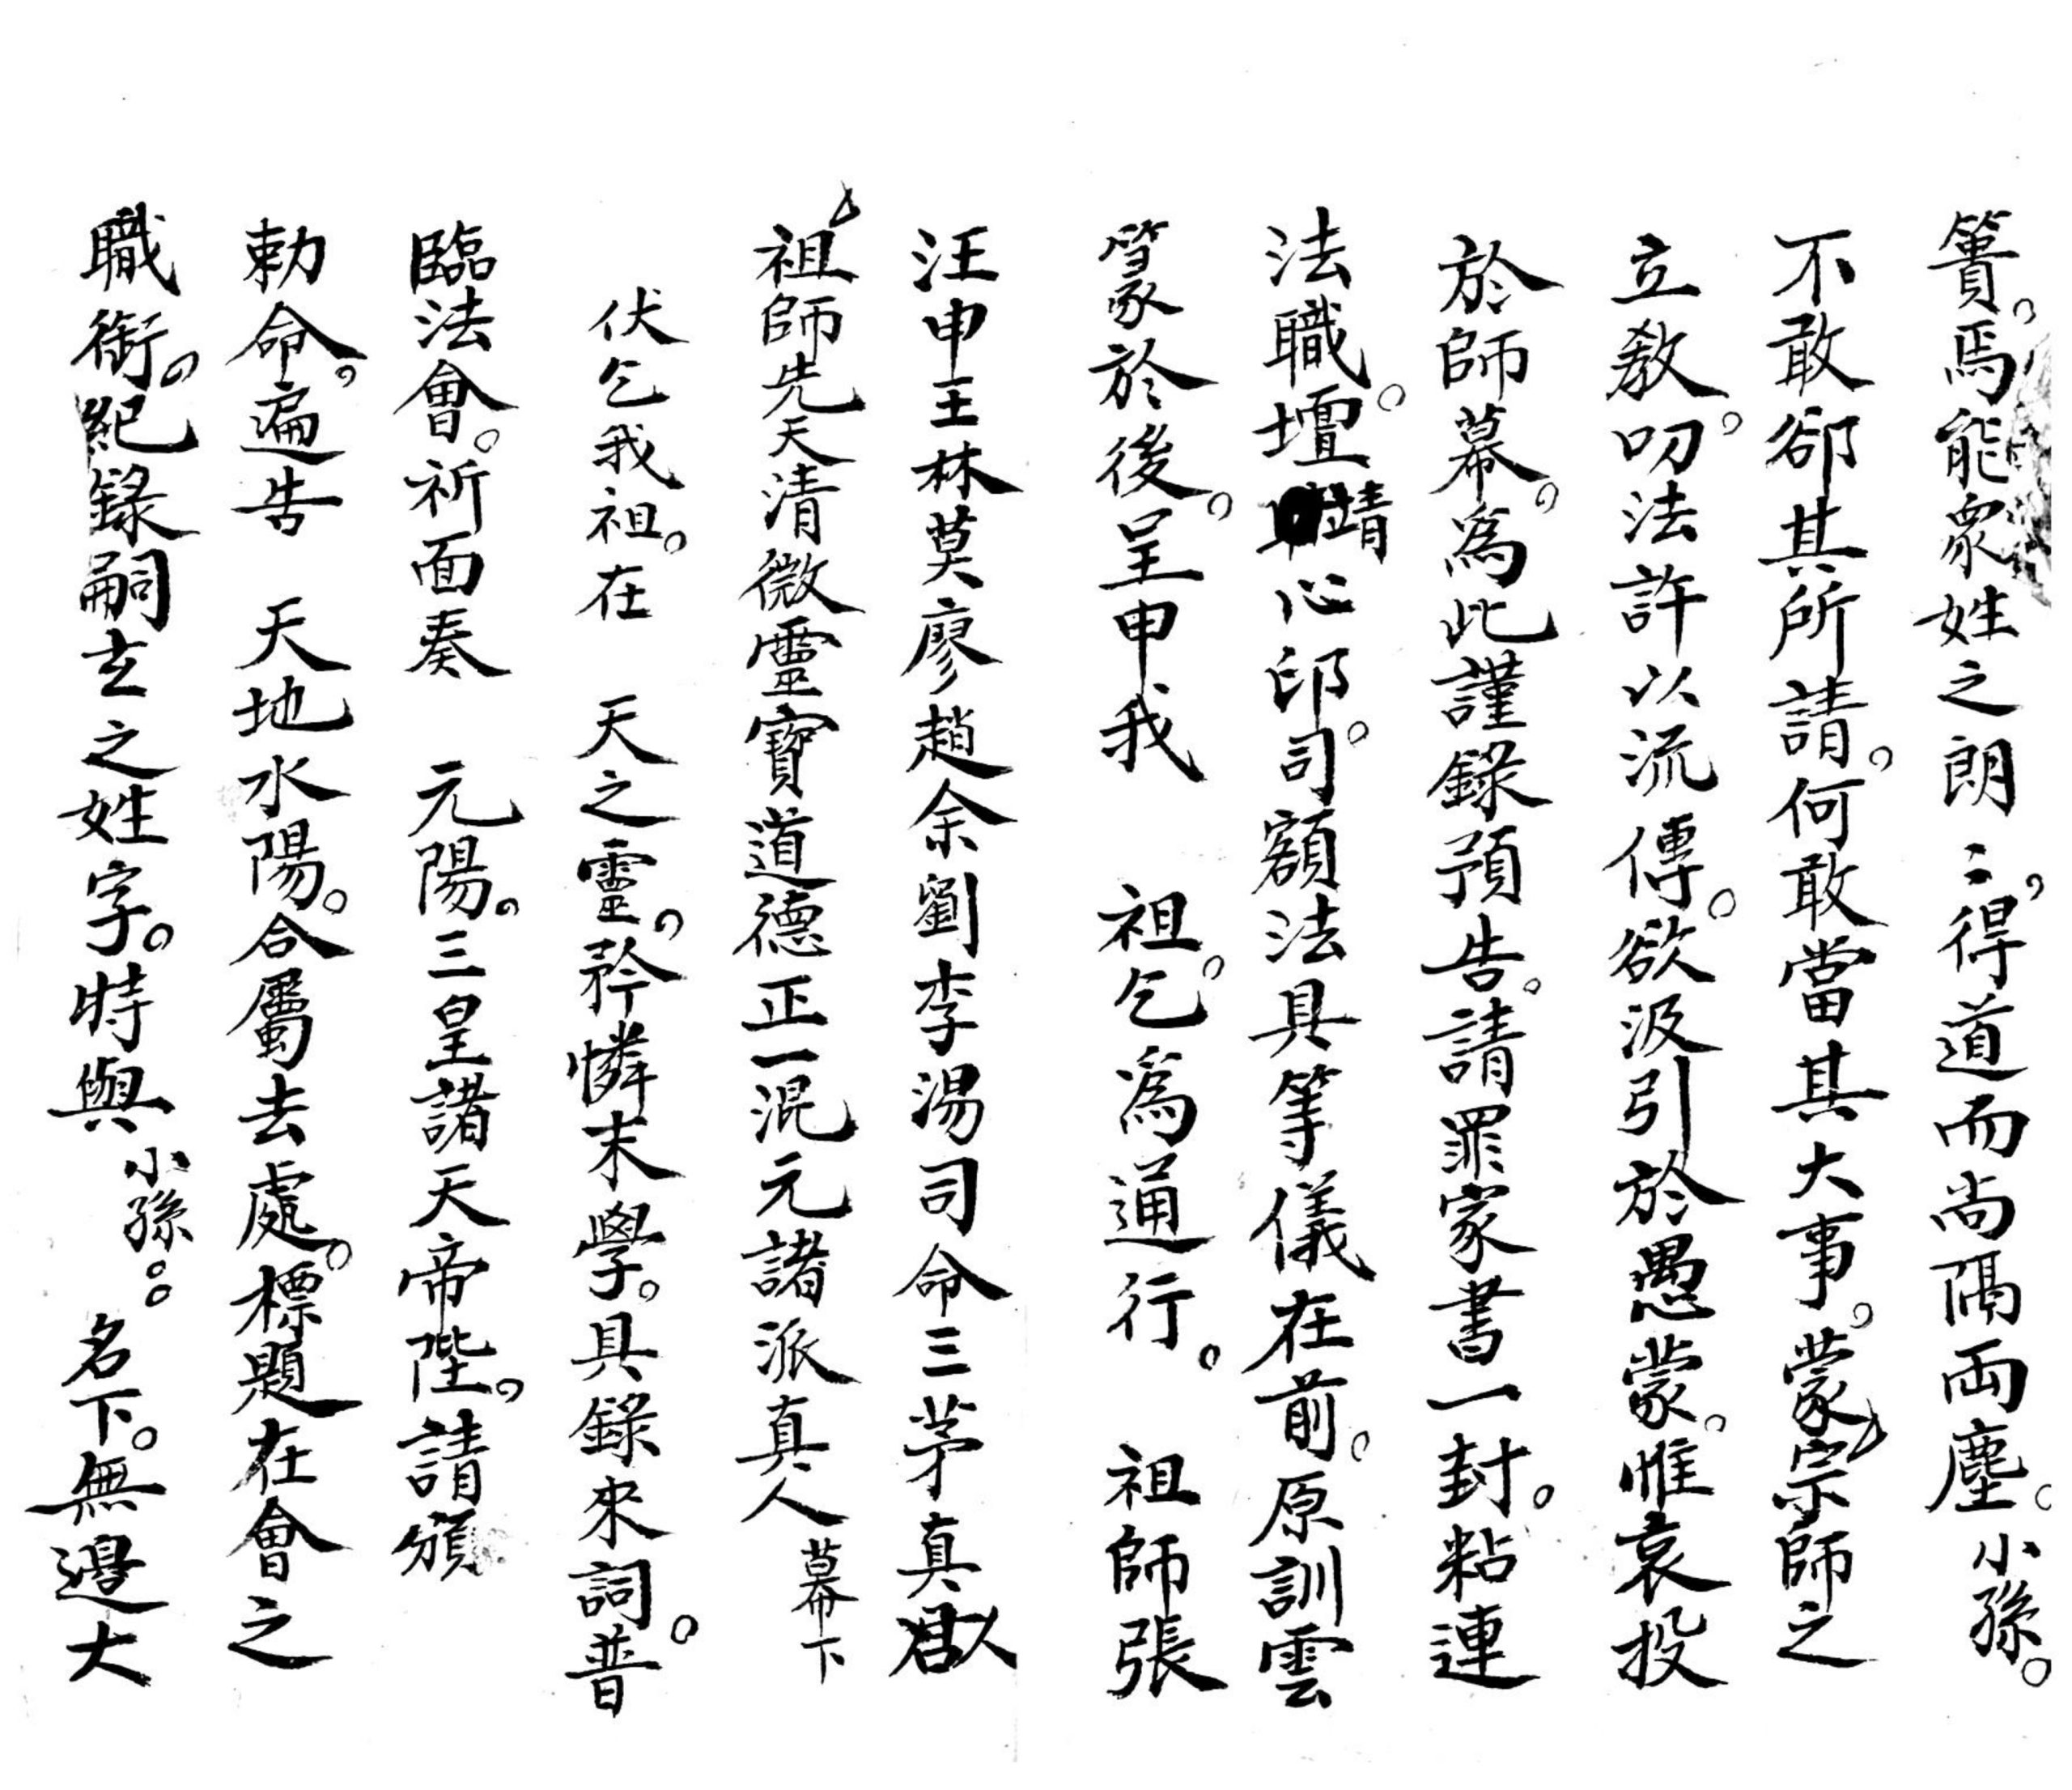 簣。焉能眾姓之朗〻。得道而尚隔両塵。小孫。
不敢卻其所請。何敢當其大事。蒙宗師之
立教。叨法許以流傳。欲汲引於愚蒙。惟哀投
於師幕。為此謹錄預告。請罪家書一封。粘連
法職。壇靖心印。司額法具等儀在前。原訓雲
篆於後。呈申我 祖。乞為通行。 祖師張
汪申王林莫廖趙余劉李湯司命三茅真人
祖師先天清微靈寶道德正一混元諸派真人幕下
伏乞我祖。在 天之靈。矜憐末學。具錄來詞。普
臨法會。祈面奏 元陽。三皇諸天帝陛。請頒
勅命。遍告 天地水陽。合屬去處。標題在會之
職銜。紀錄嗣玄之姓字。特與 小孫。。 名下。無邊大